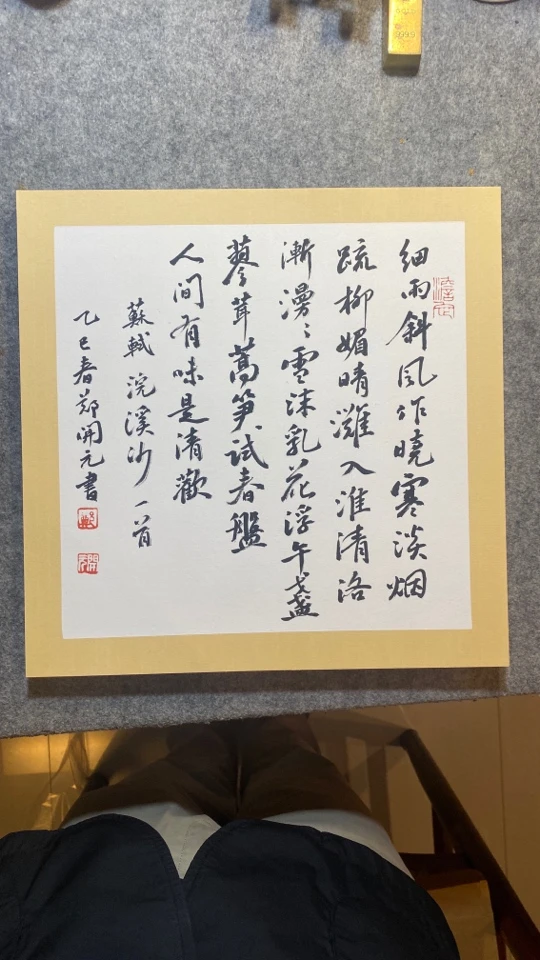 细雨斜风作曉寒淡烟
疏柳媚晴灘入淮清洛
漸漫〻雪沫乳花浮午盞
蓼茸蒿笋试春盤
人间有味是清歡
蘇軾 浣溪沙一首
乙巳春郑開元書
開元